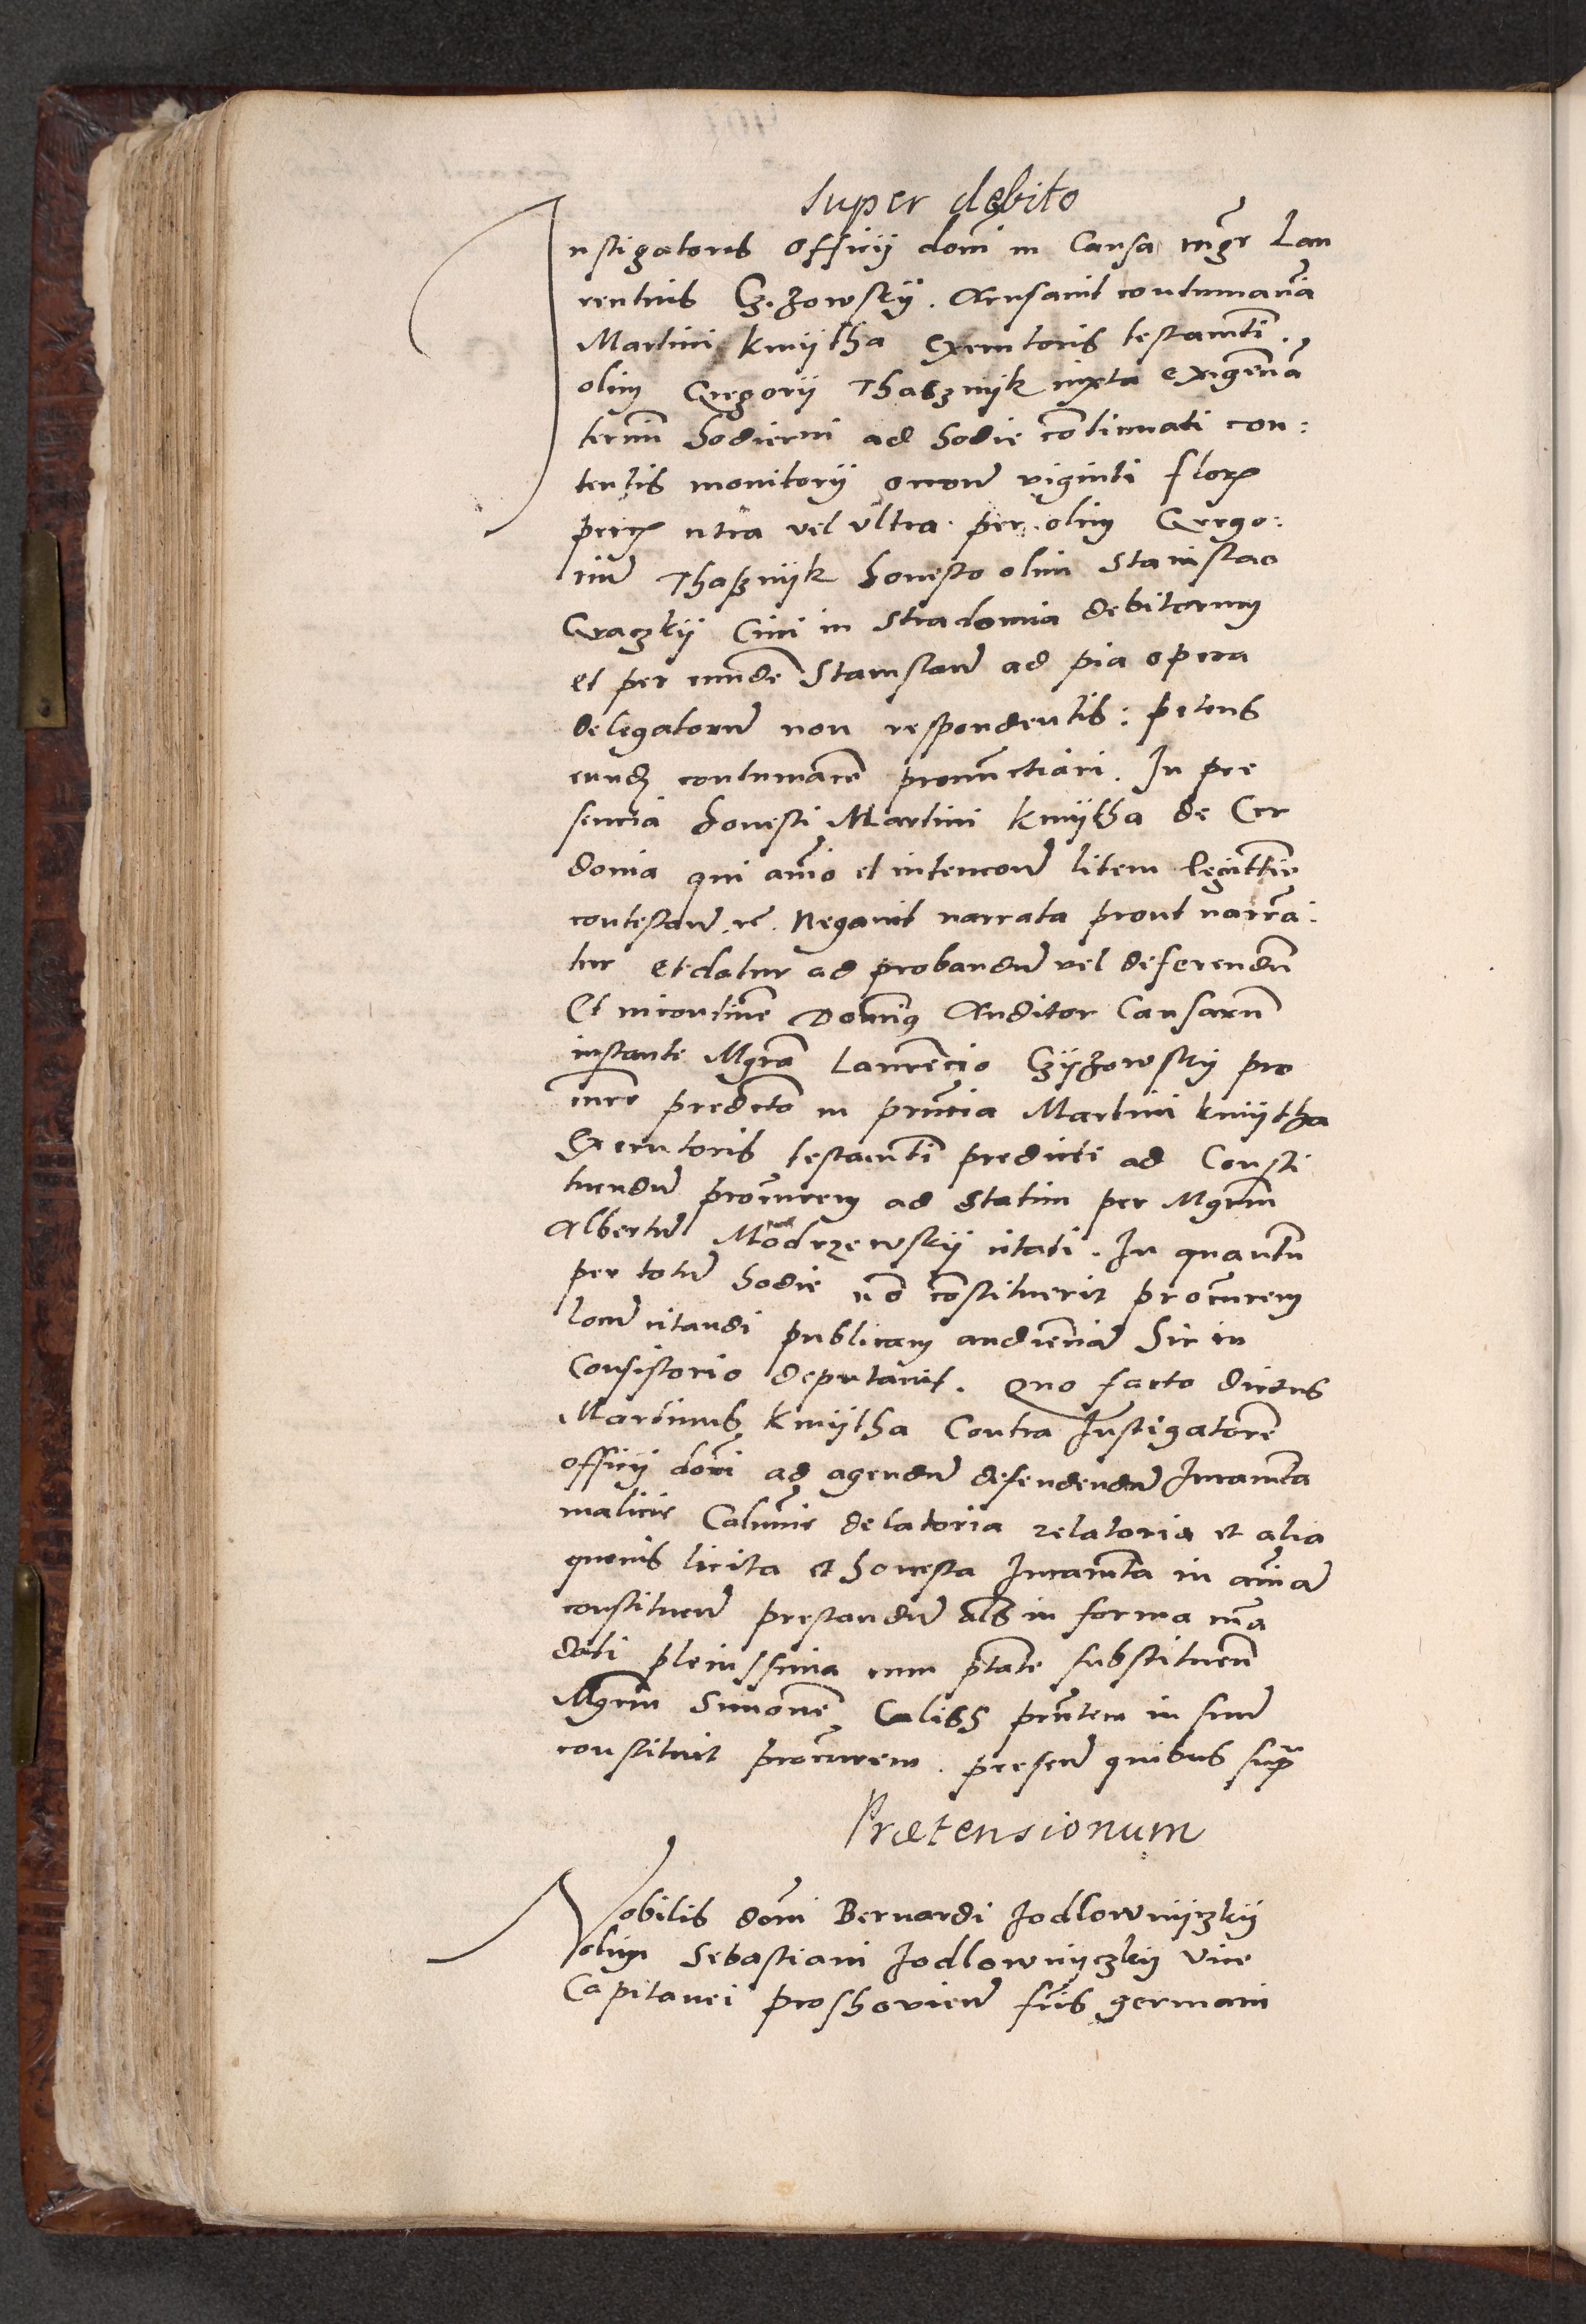 super debito
Instigatoris officij domi in Causa mgr Lau
rentius Czyzowskij. Accusavit contumaciā
Martini kmijtha Executoris testamti
olim Gregorij Thasznijk iuxta exigenciā
termini hodierni ad hodie continuati con:
tentis monitorij occone viginti flor
pecc citra vel ultra per olim Grego:
rium Thasznijk honesto olim Stanislao
Graczkij Civi in Stradomia debitorum
et per eunde Stanislaum ad pia opera
delegatorum non respondentis: petens
eundem contumacem pronunctiari. In pre
sencia honesti Martini kmijtha de Cer
donia qui animo et intencone litem legittime
contestan. rc. Negavit narrata prout narra:
tur et datur ad probandum vel deferendum
Et incontinenti Dominus Auditor Causarum
instante Mgro Laurencio Czijzowskij pro
curre predicto in pruncia Martini kmijtha
Executoris testamti predicti ad Consti
tuendum procurrem ad statim per Mgrum
Albertum Modrzewskij citati. In quantum
per totum hodie no constituerit procurem
locum citandi publicam audienciam hic in
Consistorio deputavit. Quo facto dictus
Martinus kmijtha Contra Instigatorem
officij domi ad agendum defendendum Iuramta
malicie Calumnie delatoria relatoria et alia
quevis licita et honesta Iuramta in animam
constituen prestandum als in forma man
dati plenissima cum ptate substituen
Mgrum Simonem Calissz pruntem in suum
constituit procurem. presen quibus supra
Prætensionum
Nobilis domi Bernardi Jodlownijczkij
olim Sebastiani Jodlownijczkij vice
Capitanei proshovien fris germani